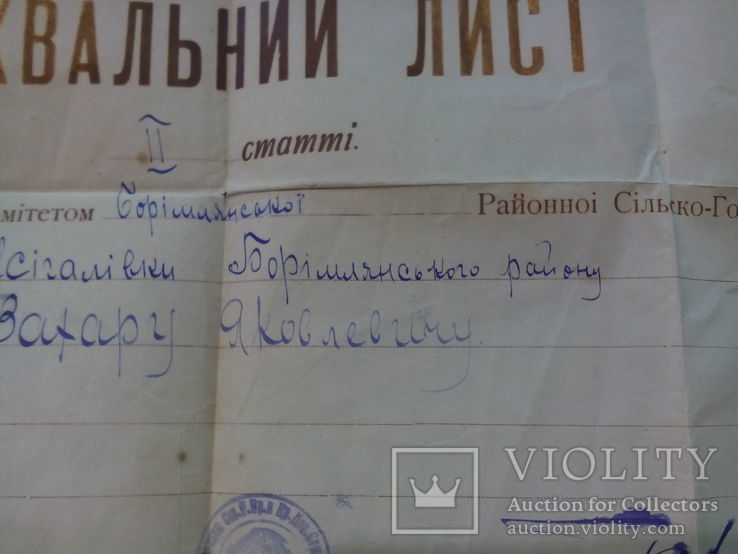 ХВАЛЬНИЙ ЛИСТ
II статті.
омітетом Борімлянської Районної Сільсько-Го
Борімлянського району
Захару Яковлевичу
VIOLITY
Auction for Collectors
auction.violity.com